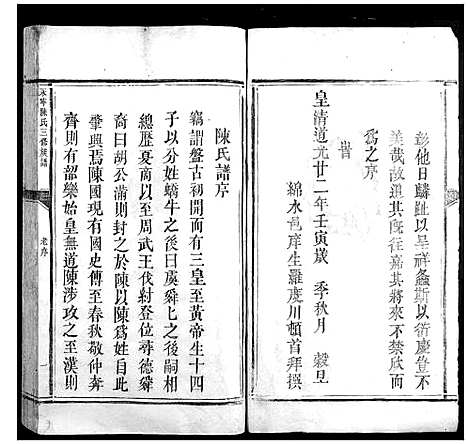 彭他日麟趾以呈祥螽斯以衍慶豈不
美哉故追其既往嘉其將來不禁欣而
為之序
皇清道光廿二年壬寅歲 季秋月 穀旦
峕
綿水邑庠生羅慶川頓首拜撰
陳氏譜序
竊謂盤古初開而有三皇至黃帝生十四
子以分姓蟜牛之後曰虞舜匕之後嗣相
總歷夏商以至周武王伐紂登位尋德舜
裔曰胡公滿則封之於陳以陳為姓自此
肇興焉陳國現有國史傳至春秋敬仲奔
齊則有韶樂始皇無道陳涉攻之至漢則
永寧陳氏三修族譜
老序
一